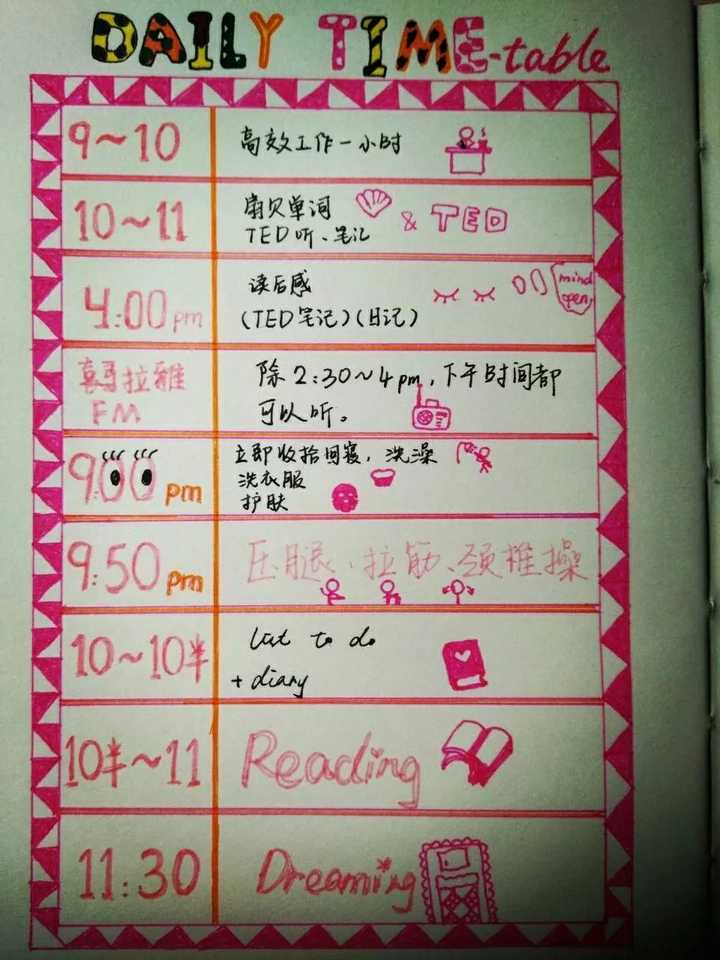 DAILY TIME-table
9~10
高效工作一小时
10~11
扇贝单词
TED听、笔记
& TED
4:00pm
读后感
(TED笔记)(日记)
mind
open
喜马拉雅
FM
除2:30~4pm,下午时间都
可以听。
9:00pm
立即收拾回寝,洗澡
洗衣服
护肤
9:50pm
压腿、拉筋、颈椎操
10~10半
list to do
+ diary
10半~11
Reading
11:30
Dreaming